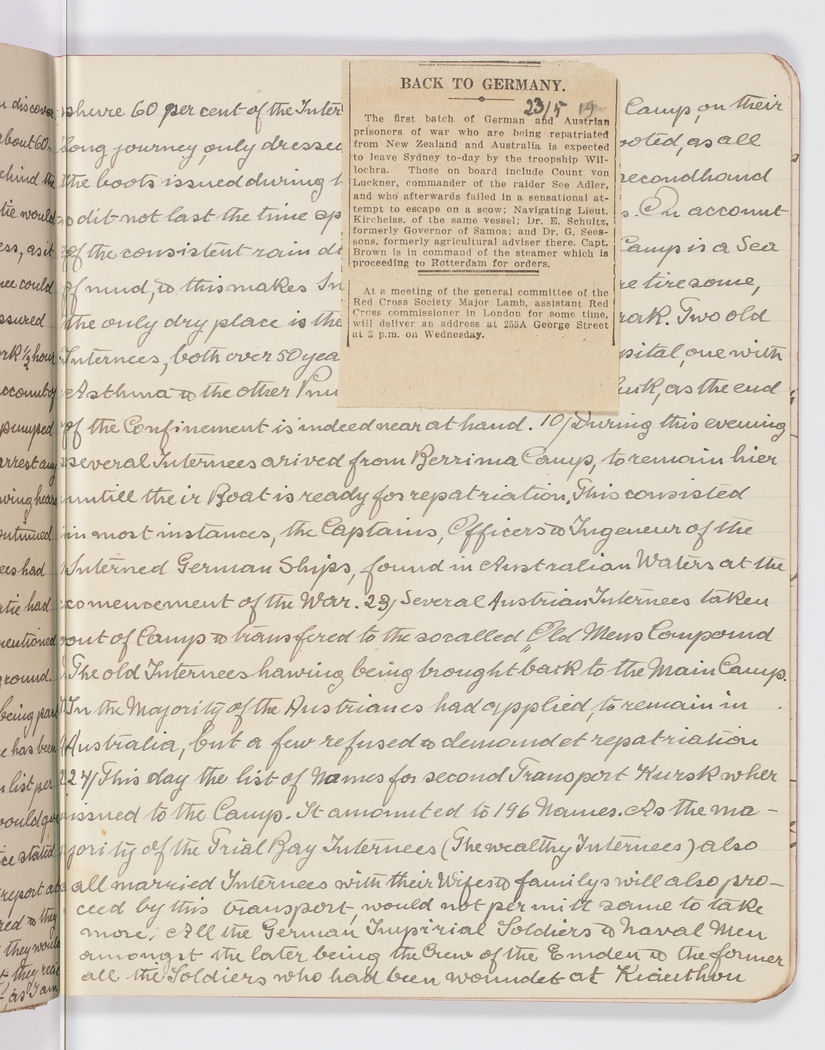 BACK TO GERMANY.
23/5 19
The first batch of German and Austrian
prisoners of war who are being repatriated
from New Zealand and Australia is expected
to leave Sydney to-day by the troopship Wil-
lochra. Those on board include Count von
Luckner, commander of the raider See Adler,
and who afterwards failed in a sensational at-
tempt to escape on a scow; Navigating Lieut.
Kircheiss, of the same vessel; Dr. E. Schultz,
formerly Governor of Samoa; and Dr. G. Sees-
sons, formerly agricultural adviser there. Capt.
Brown is in command of the steamer which is
proceeding to Rotterdam for orders.
At a meeting of the general committee of the
Red Cross Society Major Lamb, assistant Red
Cross commissioner in London for some time,
will deliver an address at 255A George Street
at 3 p.m. on Wednesday.
60 per cent of the Inter Camp, on their
long journey, only dressed as all
the boots issued during secondhand
dit not last the time On account
of the consistent rain Camp is a Sea
of mud, & this makes tiresome,
the only dry place is the Two old
Internees, both over 50 yea one with
Asthma & the other as the end
of the Confinement is indeed near at hand. 10/ During this evening
several Internees arived from Berrima Camp, to remain hier
untill their Boat is ready for repatriation. This consisted
in most instances, the Captains, Officers & Ingeneur of the
Interned German Ships, found in Australian Waters at the
comencement of the War. 23/ Several Austrian Internees taken
out of Camp & transfered to the socalled "Old Mens Compound
The old Internees hawing being brought back to the Main Camp.
In the Majority of the Austrianes had applied, to remain in
Australia, but a few refused & demandet repatriation
27/ This day the list of Names for second Transport Kursk wher
issued to the Camp. It amounted to 196 Names. As the ma-
jority of the Trial Bay Internees (The wealthy Internees) also
all married Internees with their Wifes & familys will also pro-
ceed by this transport, would not permitt same to take
more, All the German Impirial Soldiers & Naval Men
amongst the later being the Crew of the Emden & the former
all the Soldiers who had been woundet at Kiauthou